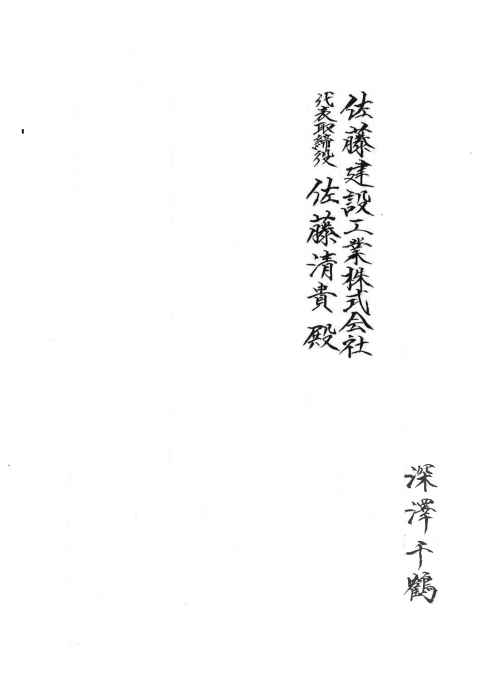 深澤千鶴
佐藤建設工業株式会社
代表取締役 佐藤清貴 殿